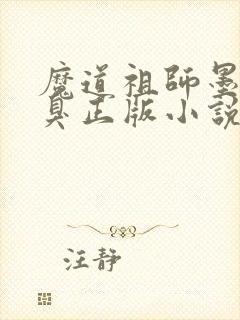 魔道祖師墨
臭正版小說
汪静